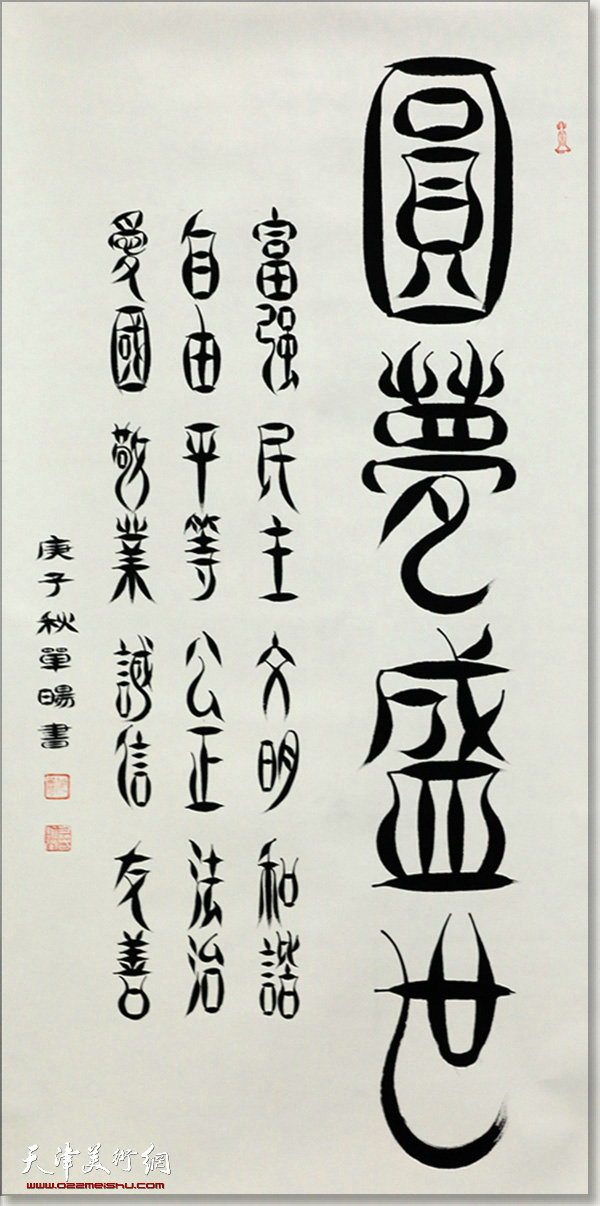 圓夢盛世
富强 民主 文明 和諧
自由 平等 公正 法治
愛國 敬業 誠信 友善
庚子秋單暘書
天津美術網
www.022meishu.com